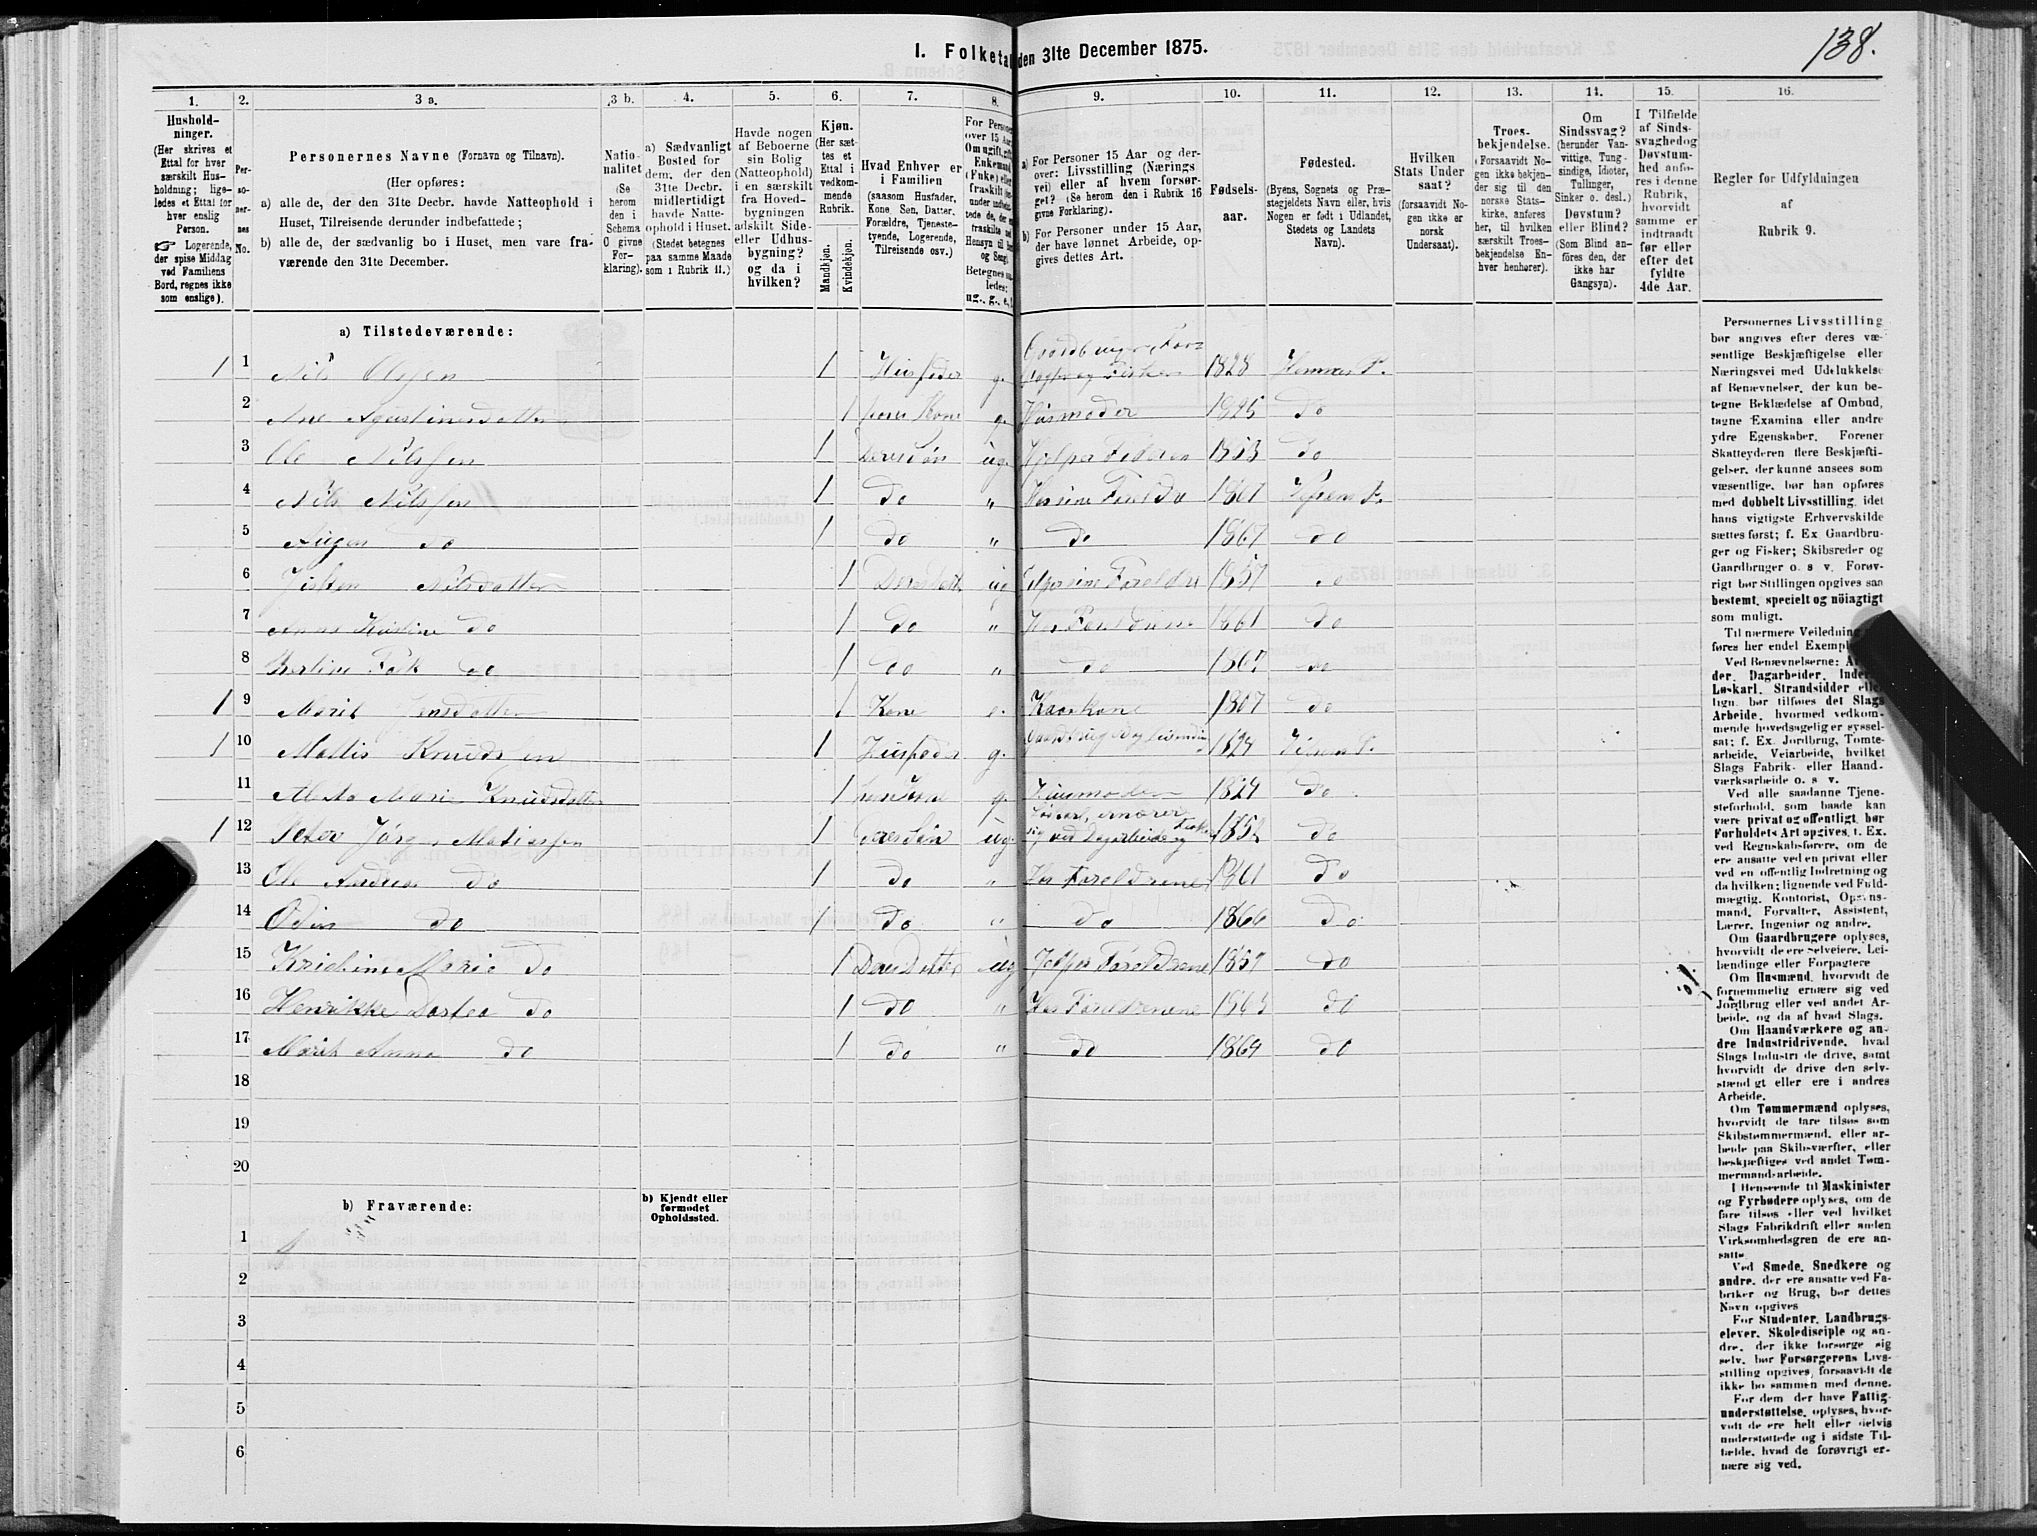 138.
I. Folketal den 31te December 1875.
1. 2. 3 a. 3 b. 4. 5. 6. 7. 8. 9. 10. 11. 12. 13. 14. 15. 16.
Hushold-
ninger.
(Her skrives et
Ettal for hver
særskilt Hus-
holdning; lige-
ledes et Ettal for
hver enslig
Person.
☞ Logerende,
der spise Middag
ved Familiens
Bord, regnes ikke
som enslige).
Per-
so-
ner-
nes
No.
Personernes Navne (Fornavn og Tilnavn).
(Her opføres:
a) alle de, der den 31te Decbr. havde Natteophold i
Huset, Tilreisende derunder indbefattede;
b) alle de, der sædvanlig bo i Huset, men vare fra-
værende den 31te December.
Natio-
nalitet
(Se
herom
den i
Schema
C givne
For-
klaring).
a) Sædvanligt
Bosted for
dem, der den
31te Decbr.
midlertidigt
havde Natte-
ophold i Huset.
(Stedet betegnes
paa samme Maade
som i Rubrik 11.)
Havde nogen
af Beboerne
sin Bolig
(Natteophold)
i en særskilt
fra Hoved-
bygningen
adskilt Side-
eller Udhus-
bygning?
og da i
hvilken?
Kjøn.
(Her sæt-
tes et
Ettal i
vedkom-
mende
Rubrik.
Mandkjøn.
Kvindekjøn.
Hvad Enhver er
i Familien
(saasom Husfader,
Kone, Søn, Datter,
Forældre, Tjeneste-
tyende, Logerende,
Tilreisende osv.)
For Personer
over 15 Aar
Om ugift, gift,
Enkemand
(Enke) eller
fraskilt
Betegnes saa-
ledes:
ug., g., e.,
a) For Personer 15 Aar og der-
over: Livsstilling (Nærings
vei) eller af hvem forsør-
get? (Se herom den i Rubrik 16
givne Forklaring).
b) For Personer under 15 Aar,
der have lønnet Arbeide, op-
gives dettes Art.
Fødsels-
aar.
Fødested.
(Byens, Sognets og Præ-
stegjeldets Navn eller, hvis
Nogen er født i Udlandet,
Stedets og Landets
Navn).
Hvilken
Stats Under
saat?
(forsaavidt No-
gen ikke er
norsk
Undersaat).
Troes-
bekjendelse.
(Forsaavidt No-
gen ikke bekjen-
der sig til den
norske Stats-
kirke, anføres
her, til hvilken
særskilt Troes-
bekjendelse En-
hver henhører).
Om
Sindssvag?
(herunder Van-
vittige, Tung-
sindige, Idioter,
Tullinger,
Sinker o. desl.)
Døvstum?
eller Blind?
(Som Blind an-
føres den, der
ikke har
Gangsyn).
I Tilfælde
af Sinds-
svaghed og
Døvstum-
hed anfø-
res i denne
Rubrik,
hvorvidt
samme er
indtraadt
før eller
efter det
fyldte
4de Aar.
Regler for Udfyldningen
af
Rubrik 9.
a) Tilstedeværende:
1 1 Nils Olssen 1 Husfader g. Gaardbruger, 1828 Hemnes P.
2 Ane Agustinusdatter 1 hans Kone g. Husmoder 1825 Do
3 Ole Nilssen 1 Deres Søn ug. Hjelper Faderen 1853 Do
4 Nils Nilssen 1 Do " 1861
5 Do 1 Do " do 1867 Do
6 Nilsdatter 1 ug 1857 Do
7 Kristine Do 1 Do " Hos 1861 Do
8 Do 1 Do " Do 1867 Do
1 9 Marit Jensdatter 1 Kone e. Kaarkone 1807 Do
1 10 Mattis Knudssen 1 Husfader g. 1824
11 Marie Knudsdatter 1 hans Kone g. Husmoder 1829 Do
1 12 Peter Jørg. Matissen 1 deres Søn ug. ernærer sig ved Dagarbeide og 1852 Do
13 Ole Andreas Do 1 Do " Hos Foreldrene 1861 Do
14 Odin do 1 Do " do 1866 Do
15 Kristine Marie Do 1 Deres Datter ug Foreldrene 1857 Do
16 Henrikke Dortea Do 1 Do " Hos Foreldrene 1863 Do
17 Marit Anna Do 1 Do " Do 1869 Do
18
19
20
b) Fraværende:
b) Kjendt eller
formodet
Opholdssted.
1
2
3
4
5
6
Personernes Livsstilling
bør angives efter deres væ-
sentlige Beskjæftigelse eller
Næringsvei med Udelukkelse
af Benævnelser, der kun be-
tegne Beklædelse af Ombud,
tagne Examina eller andre
ydre Egenskaber. Forener
Skatteyderen flere Beskjæfti-
gelser, der kunne ansees som
væsentlige, bør han opføres
med dobbelt Livsstilling, idet
hans vigtigste Erhvervskilde
sættes først; f. Ex Gaardbru-
ger og Fisker; Skibsreder og
Gaardbruger o. s. v. Forøv-
rigt bør Stillingen opgives saa
bestemt, specielt og nöiagtigt
som muligt.
Til nærmere Veiledning
føres her endel Exempler
Ved Benævnelserne: Ar-
der, Dagarbeider, Inder-
Løskarl, Strandsidder eller
lign. bør tilføies det Slags
Arbeide, hvormed vedkom-
mende hovedsagelig er syssel-
sat; f. Ex. Jordbrug, Tomte-
arbeide, Veiarbeide, hvilket
Slags Fabrik- eller Haand-
værksarbeide o. s v.
Ved alle saadanne Tjene-
steforhold, som baade kan
være privat og offentligt, bør
Forholdets Art opgives, f. Ex.
ved Regnskabsførere, om de
ere ansatte ved en privat eller
ved en offentlig Indretning og
da hvilken; lignende ved Fuld-
mægtig, Kontorist, Opsyns-
mand, Forvalter, Assistent,
Lærer, Ingeniør og andre.
Om Gaardbrugere oplyses,
hvorvidt de ere Selveiere, Lei-
lændinge eller Forpagtere
Om Husmænd, hvorvidt de
fornemmelig ernære sig ved
Jordbrug eller ved andet Ar-
beide, og da af hvad Slags.
Om Haandværkere og an-
dre Industridrivende, hvad
Slags Industri de drive, samt
hvorvidt de drive den selv-
stændigt eller ere i andres
Arbeide.
Om Tømmermænd oplyses,
hvorvidt de fare tilsøs som
Skibstømmermænd, eller ar-
beide paa Skibsværfter, eller
beskjæftiges ved andet Tøm-
mermandsarbeide.
I Henseende til Maskinister
og Fyrbødere oplyses, om de
fare tilsøs eller ved hvilket
Slags Fabrikdrift eller anden
Virksomhedsgren de ere an-
satte.
Ved Smede, Snedkere og
andre, der ere ansatte ved Fa-
briker og Brug, bør dettes
Navn opgives
For Studenter, Landbrugs-
elever, Skoledisciple og an-
dre, der ikke forsørge sig
selv, bør Forsørgerens Livs-
stilling opgives, forsaavidt de
ikke bo sammen med denne.
For dem, der have Fattig-
understøttelse, oplyses, hvor-
vidt de ere helt eller delvis
understøttede og i sidste Til-
fælde, hvad de forøvrigt er-
nære sig ved.